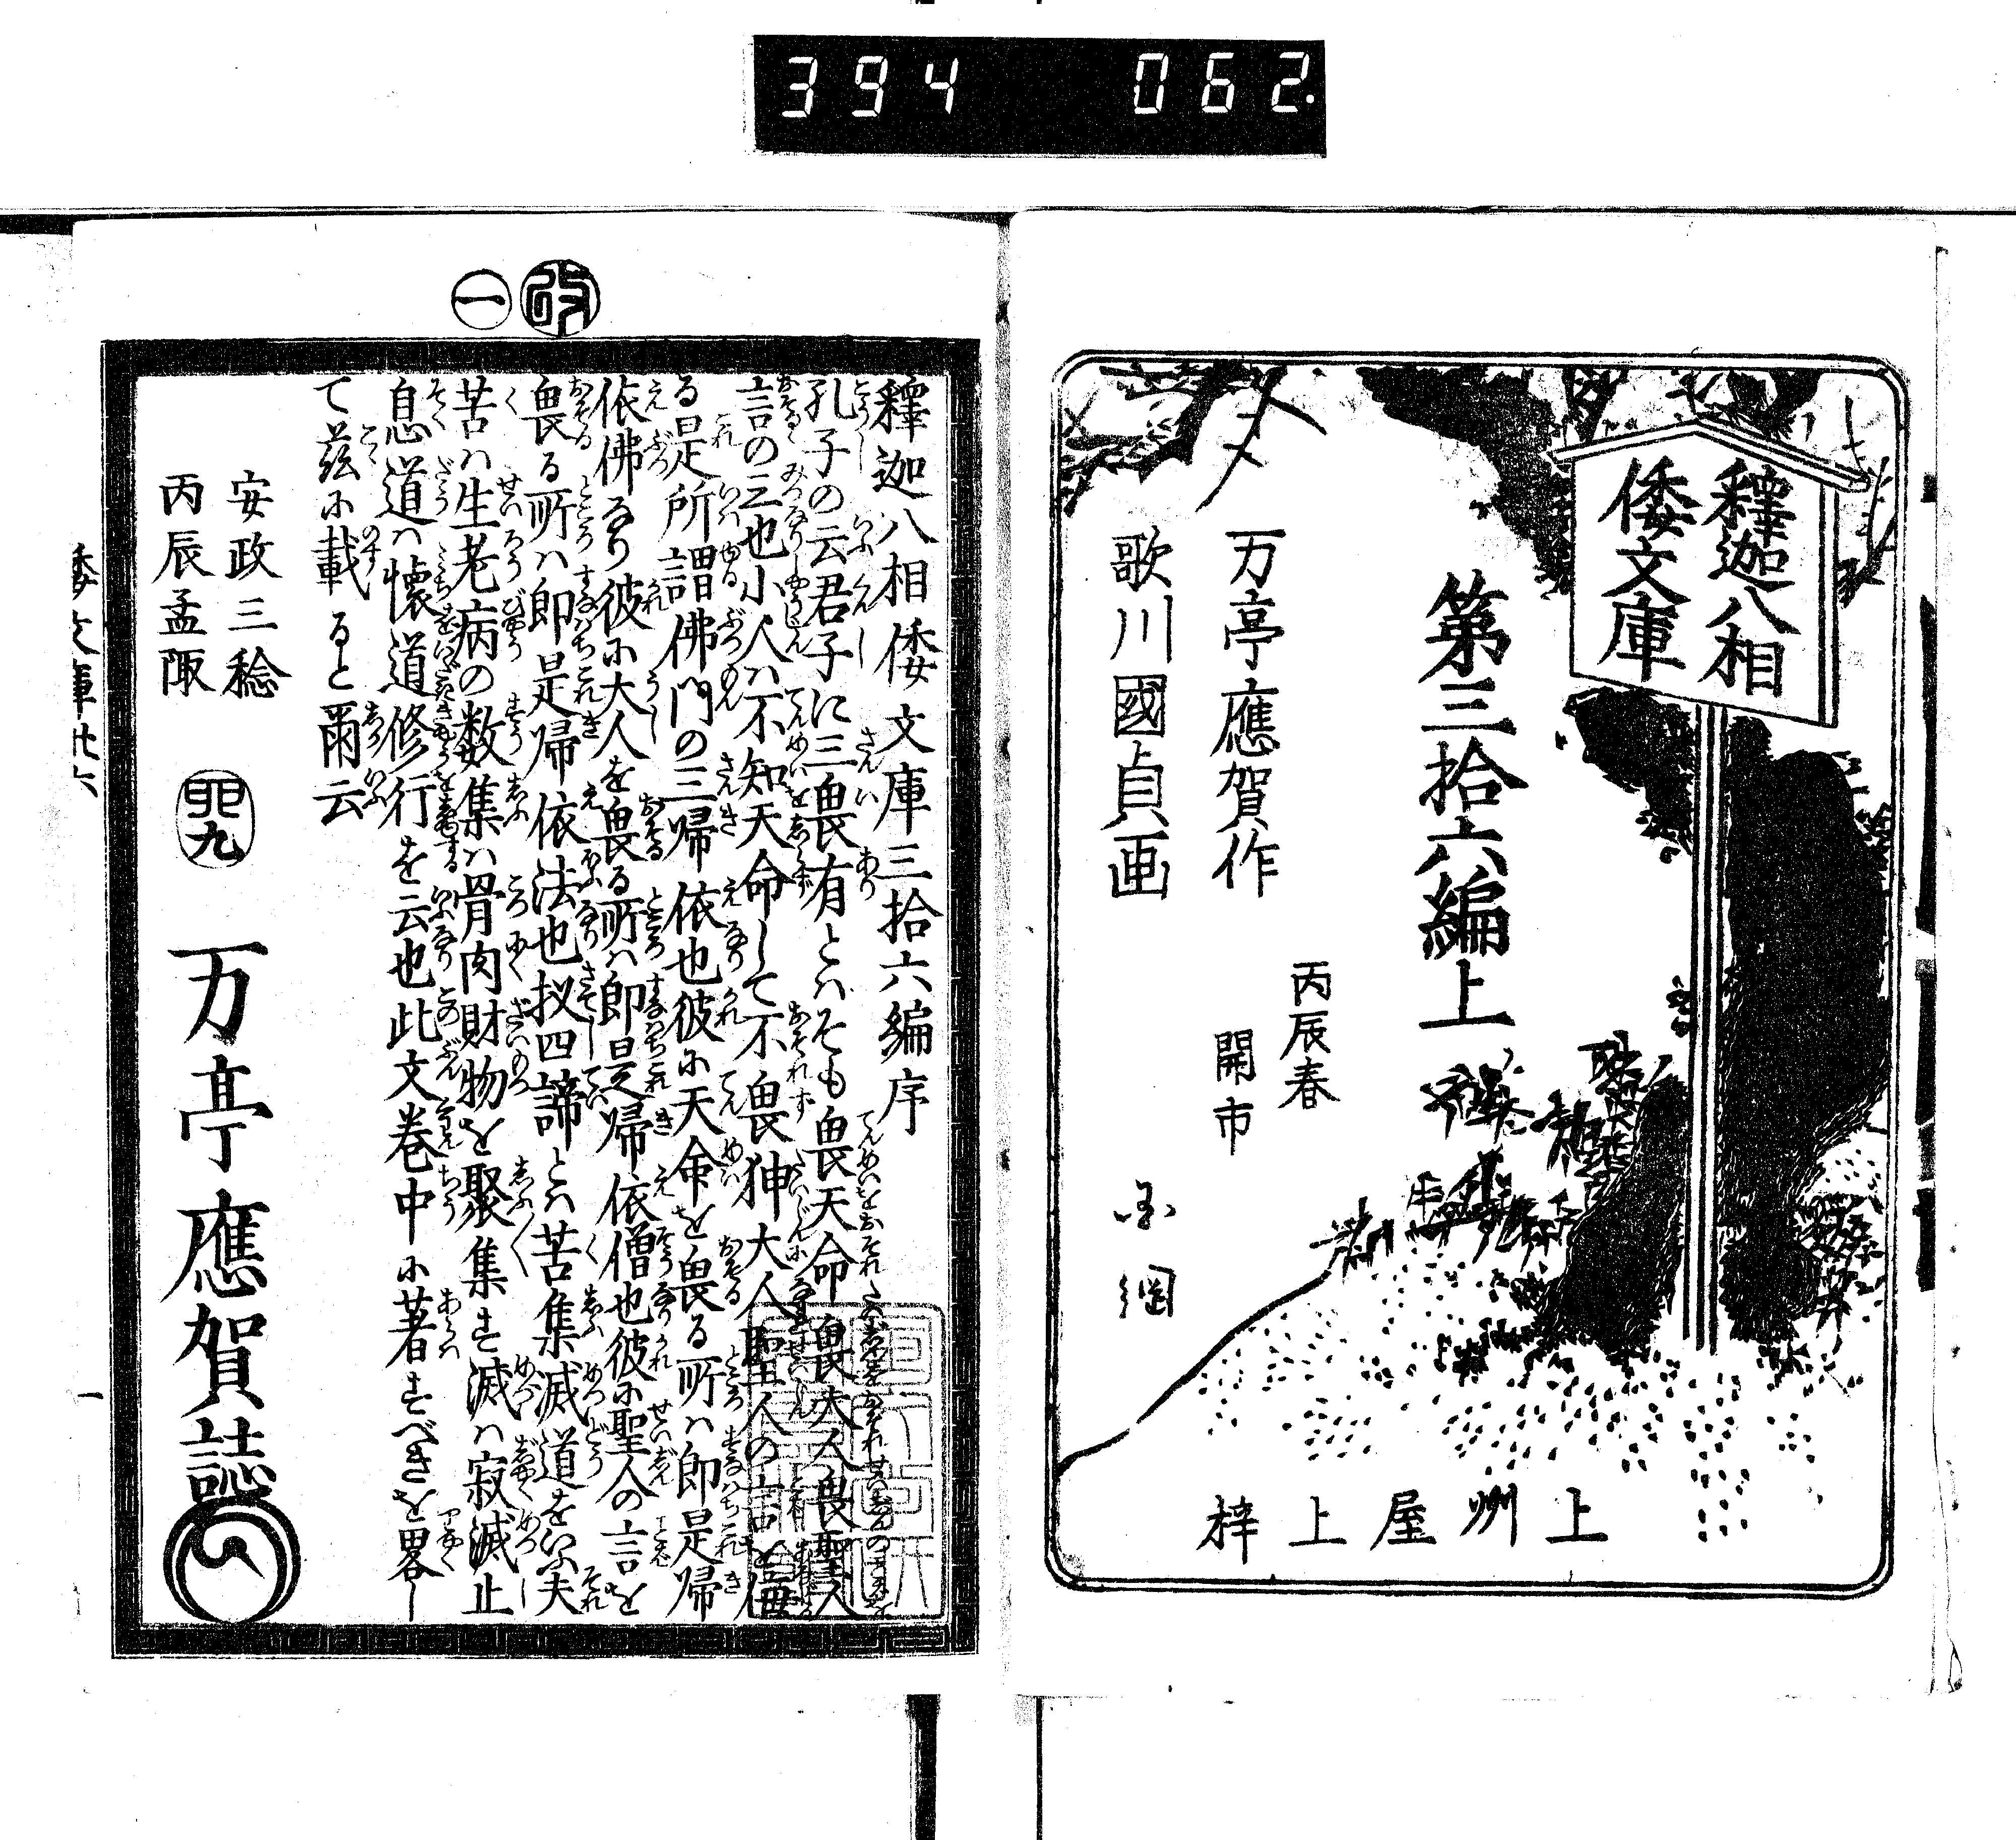 394 062.
釋迦八相
倭文庫
第三拾六編上
丙辰春
開市
万亭應賀作
歌川國貞画
上州屋上梓
改
一
釋迦八相倭文庫三拾六編序
孔子の云君子に三畏有とハそも畏天命畏大人畏聖人
言の三也小人ハ不知天命して不畏狎大人聖人の言を侮
る是所謂佛門の三帰依也彼ホ天命を畏る所ハ即是帰
依佛なり彼ホ大人を畏る所ハ即是帰依僧也彼ホ聖人の言を
畏る所ハ即是帰依法也扨四諦とハ苦集滅道をいふ夫
苦ハ生老病の数集ハ骨肉財物を聚集す滅ハ寂滅止
息道ハ懐道修行を云也此文巻中ホ著すべきを畧し
て茲ホ載ると爾云
安政三稔
丙辰孟陬
万亭應賀誌
倭文庫卅六
一